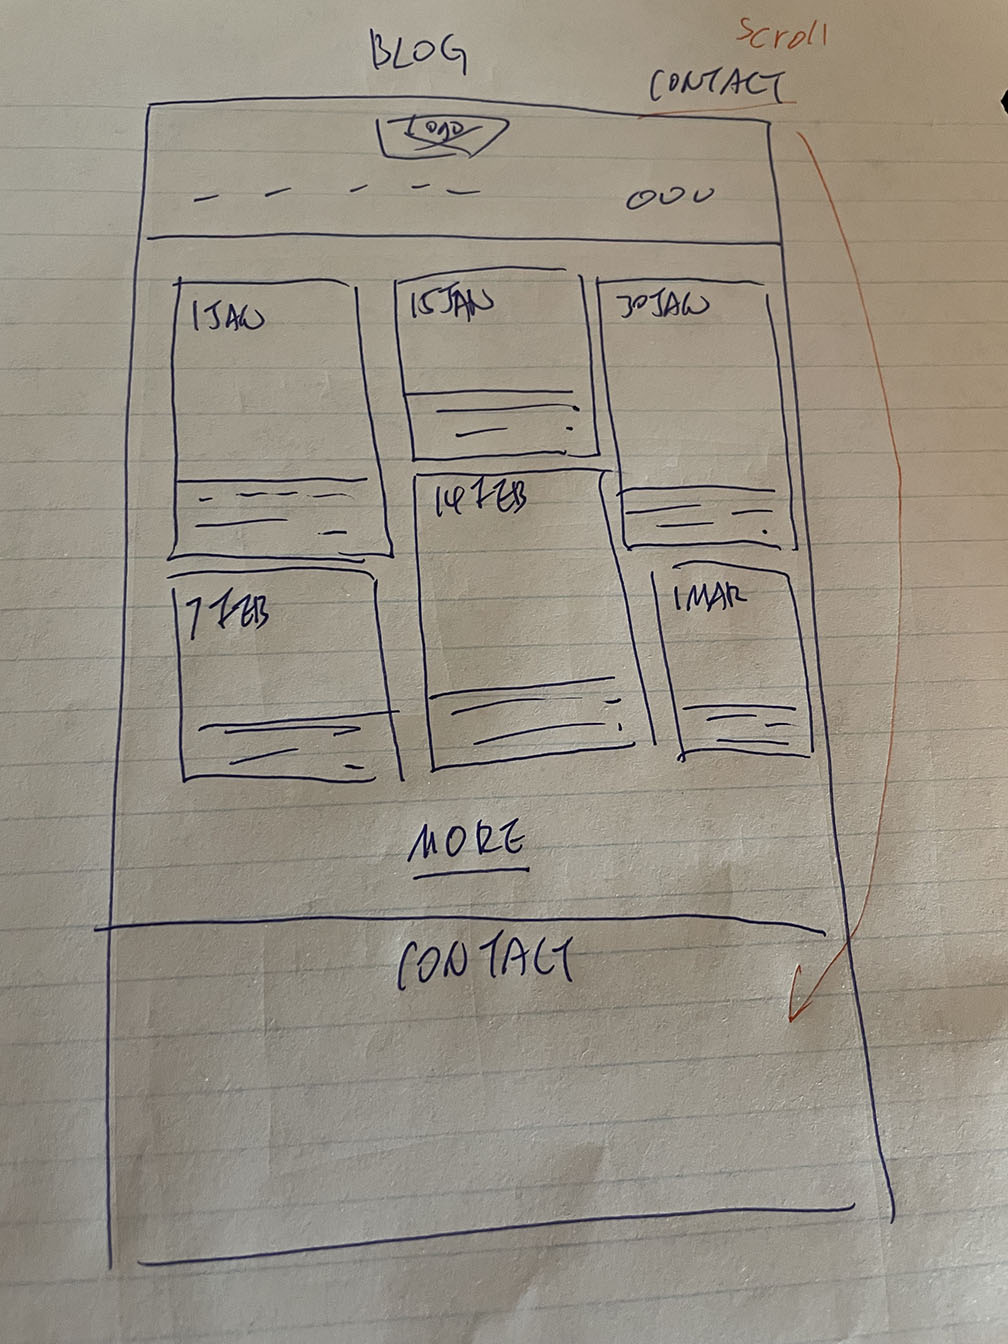 Scroll
BLOG
CONTACT
Logo
1 JAN
15 JAN
30 JAN
14 FEB
7 FEB
1 MAR
MORE
CONTACT